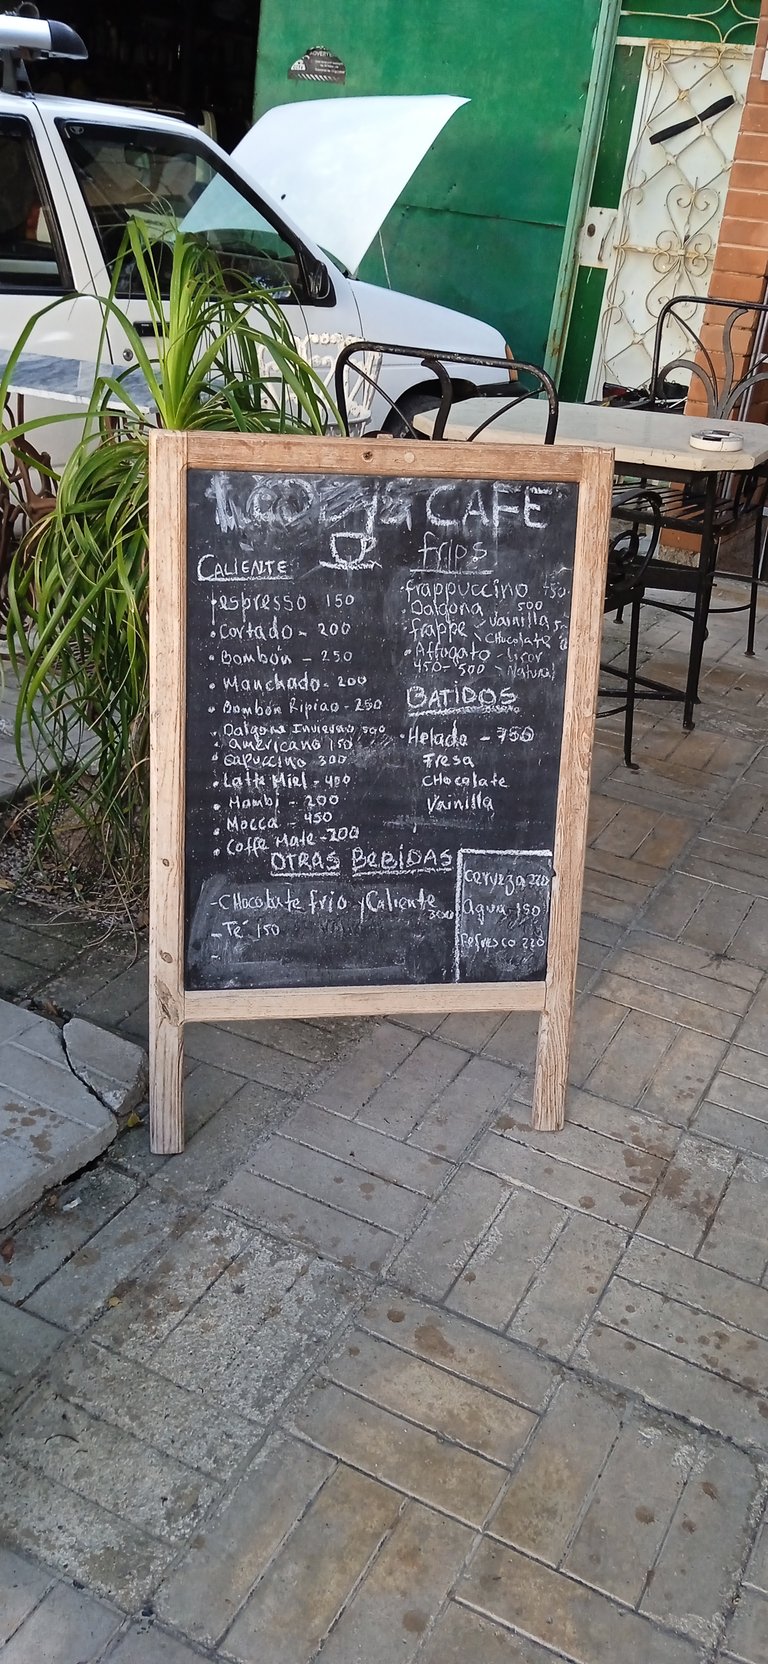 CAFE
CALIENTE
• espresso 150
• Cortado - 200
• Bombón - 250
• Manchado - 200
• Bombón Ripiao - 250
• Dalgona Invierno 500
• Americano 150
• Capuccino 300
• Latte Miel - 400
• Mambi - 200
• Mocca - 450
• Coffe Mate - 200
frios
• frappuccino 450
• Dalgona 500
• frappe - Vainilla
- CHocolate
• Affogato - licor
450 - 500 - Natural
BATIDOS
• Helado - 750
Fresa
CHocolate
Vainilla
OTRAS BEBIDAS
- CHocolate frio y Caliente 300
- Té 150
-
Cerveza 220
Agua 150
Refresco 220